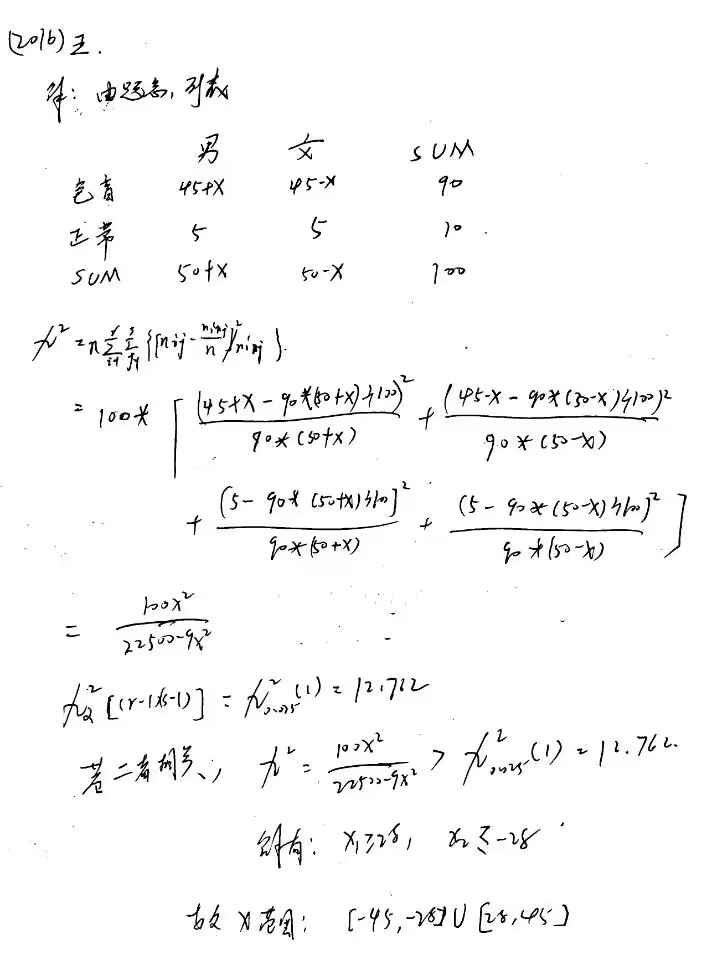 (2016) 五.
解：由题意，列表
男 女 SUM
色盲 45+x 45-x 90
正常 5 5 10
SUM 50+x 50-x 100
χ² = n Σ Σ {[nij - ninj/n]²/ninj}.
= 100* [ (45+x - 90*(50+x)/100)² / 90*(50+x) + (45-x - 90*(50-x)/100)² / 90*(50-x)
+ (5 - 90*(50+x)/100)² / 90*(50+x) + (5 - 90*(50-x)/100)² / 90*(50-x) ]
= 100x² / 22500-9x²
χ²α [(r-1)(s-1)] = χ²0.025 (1) = 12.762
若二者相关、, χ² = 100x² / 22500-9x² > χ²0.025 (1) = 12.762.
解有: x₁≥28, x₂≤-28
故 x 范围: [-45,-28]∪[28,45]